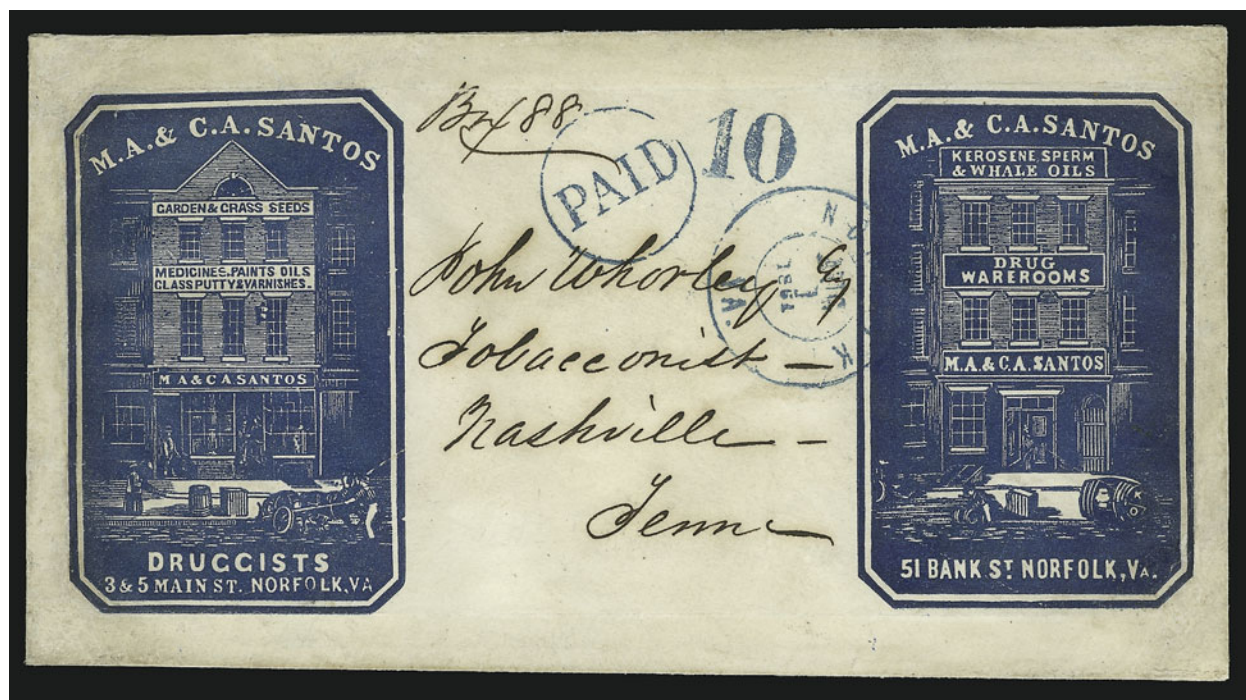 M.A. & C.A. SANTOS
GARDEN & GRASS SEEDS
MEDICINES, PAINTS OILS
GLASS PUTTY & VARNISHES.
M A & C A SANTOS
DRUGGISTS
3 & 5 MAIN ST. NORFOLK, VA
Box 88
PAID
10
John Whorley
Tobacconist —
Nashville —
Tenn
M.A. & C.A. SANTOS
KEROSENE, SPERM
& WHALE OILS
DRUG
WAREROOMS
M.A. & C.A. SANTOS
51 BANK ST NORFOLK, VA.